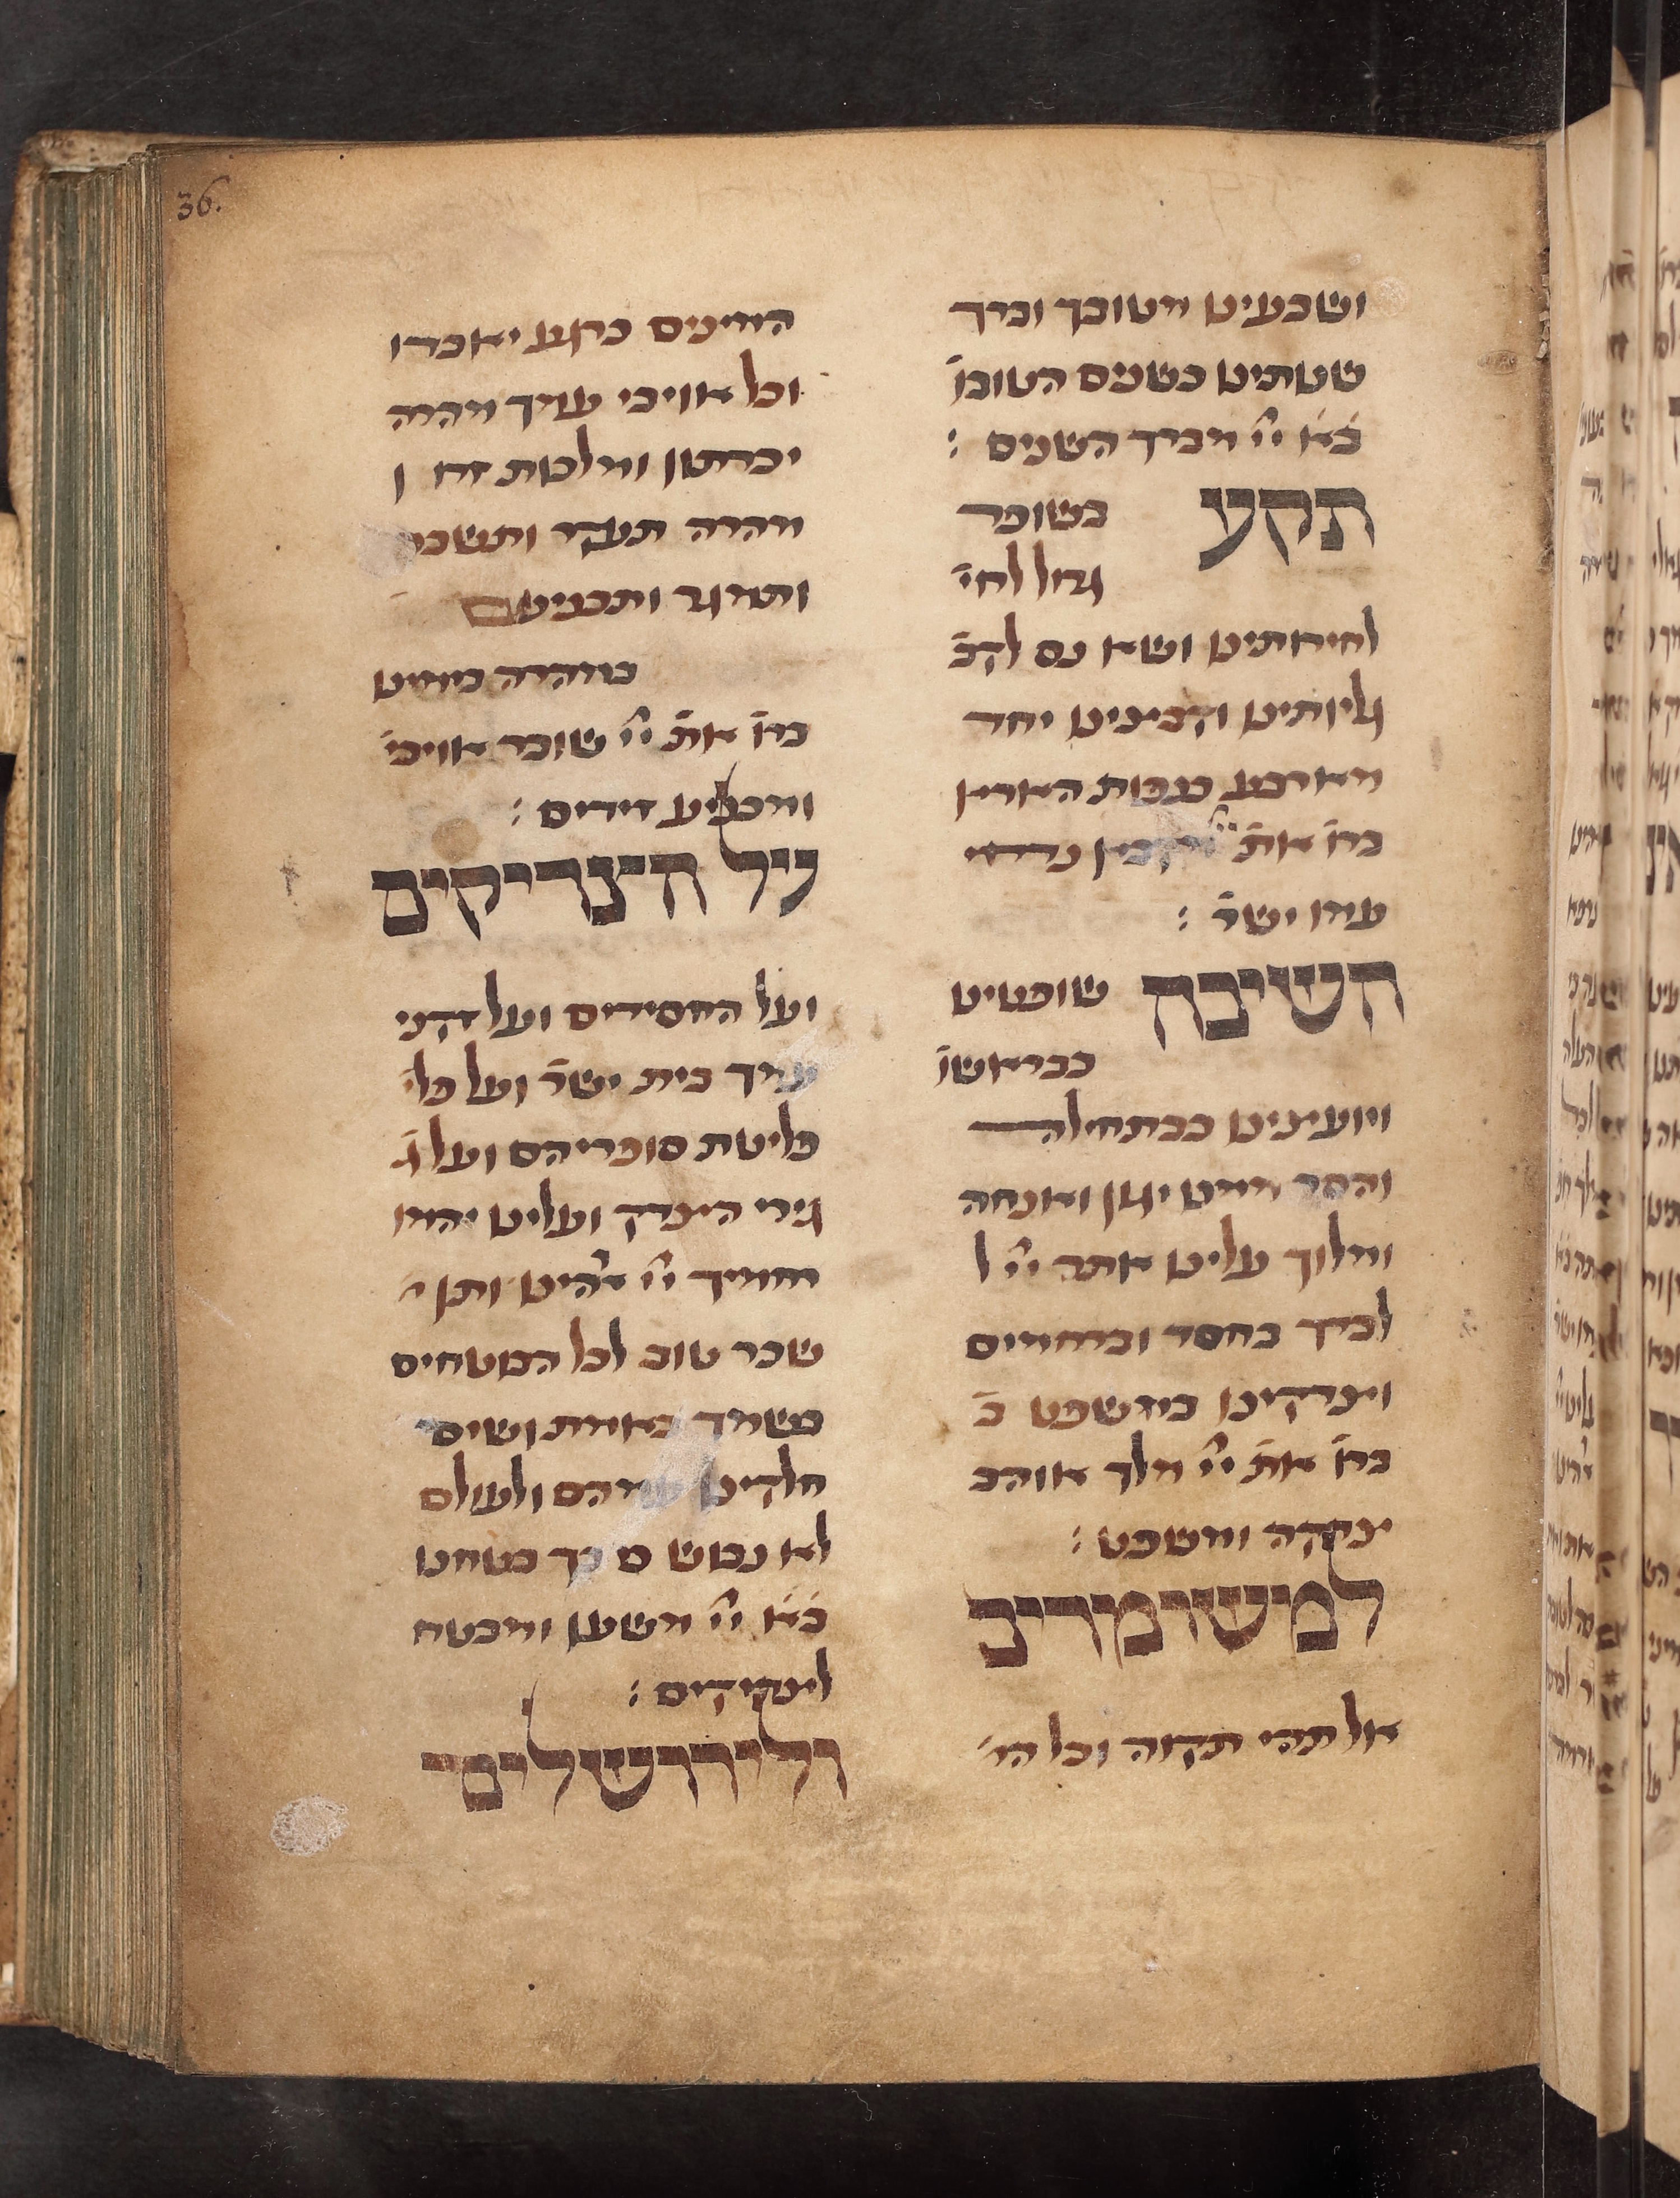 36.
ושבעינו מטובך וברך
שנתינו כשנים הטובו
ב֗א֗ יי מברך השנים :
תקע בשופר
גדול לחי
לחירותינו ושא נס לקב
גליותינו וקבצינו יחד
מארבע כנפות הארץ
ברו את יי מקבץ נדחי
עמו ישר :
השיבה שופטינו
כבראשו
ויועצינו כבתחילה
והסר ממנו יגון ואנחה
ומלוך עלינו אתה יי ל
לבדך בחסד וברחמים
וצדקינו במשפט ב
ברו את יי מלך אוהב
צדקה ומשפט :
למשומדים
אל תהי תקוה וכל המ
המינים כרגע יאבדו
וכל אויבי עמך מהרה
יכרתון ומלכות זד ן
מהרה תעקר ותשבר
ותמגר ותכניעם
במהרה בימינו
ברו את יי שובר אויבי
ומכניע זדים :
על הצדיקים
ועל החסידים ועל זקני
עמך בית ישר ועל פלי
פליטת סופריהם ועל ג
גירי הצדק ועלינו יהמו
רחמיך יי אלהינו ותן
שכר טוב לכל הבוטחים
בשמך באמת ושים
חלקינו עמהם ולעולם
לא נבוש כי בך בטחנו
ב֗א֗ יי משען ומבטח
לצדיקים :
ולירושלים